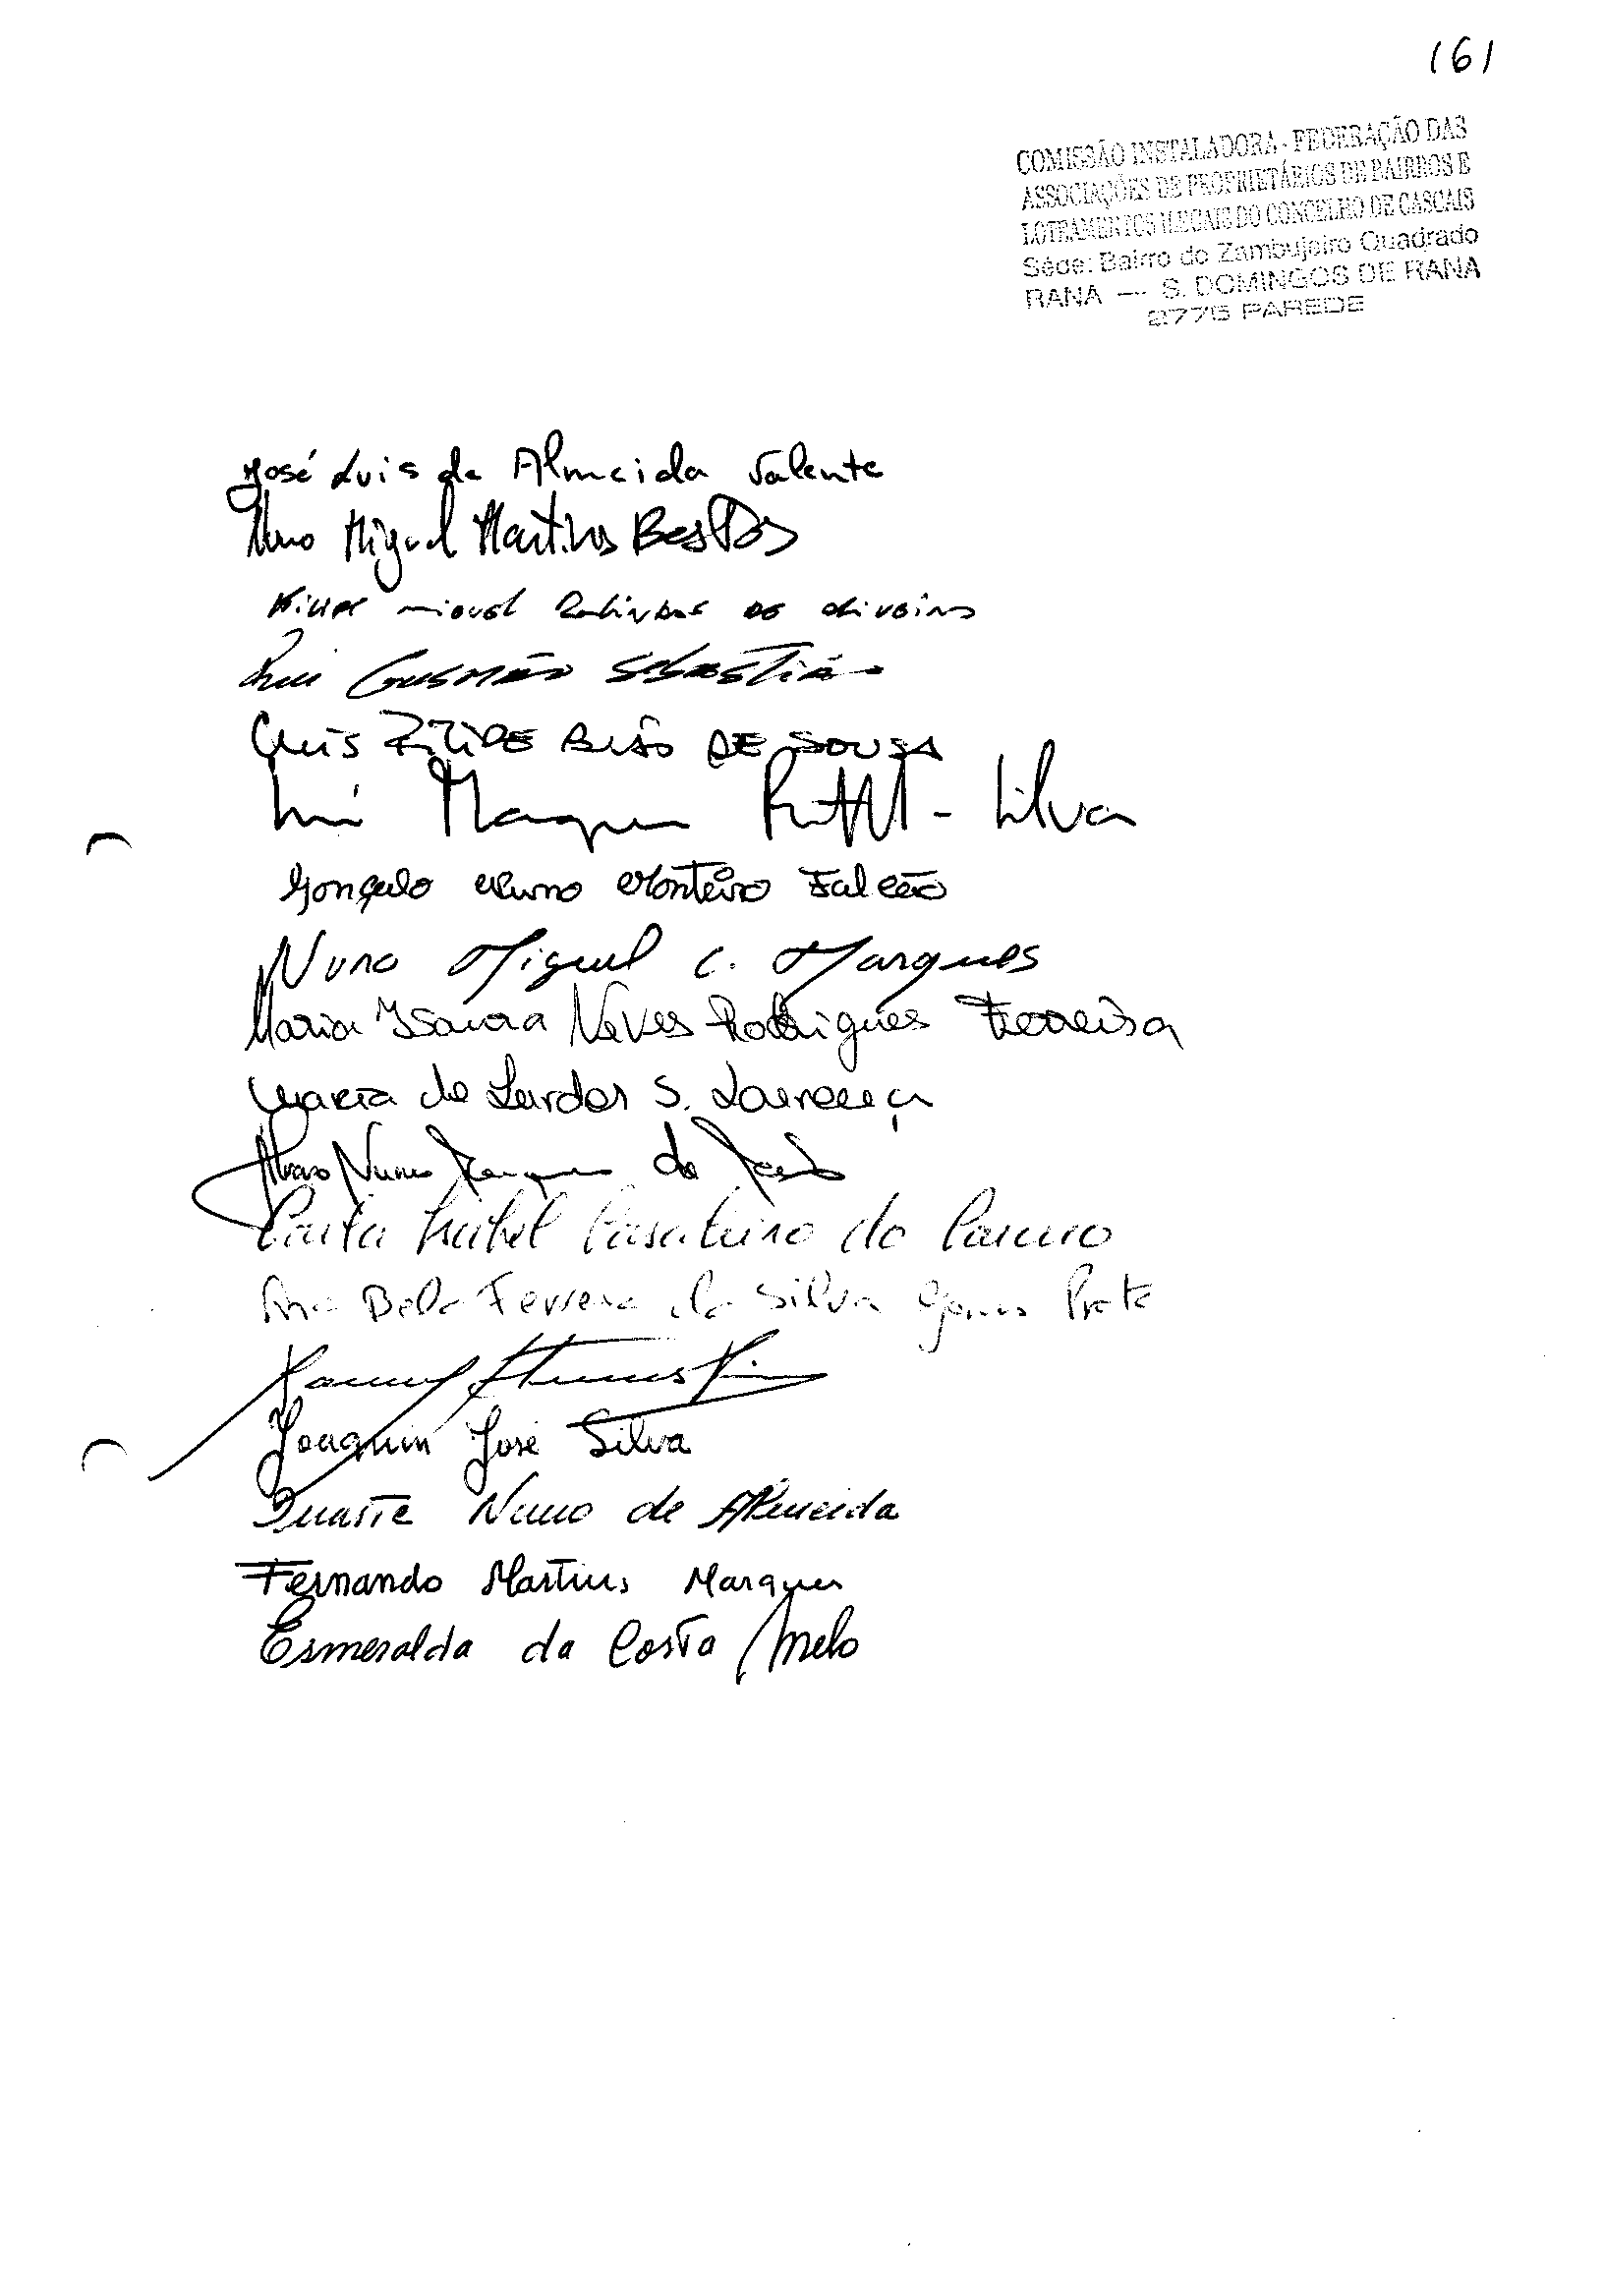 161
COMISSÃO INSTALADORA - FEDERAÇÃO DAS
ASSOCIAÇÕES DE PROPRIETÁRIOS DE BAIRROS E
LOTEAMENTOS ILEGAIS DO CONCELHO DE CASCAIS
Séde: Bairro do Zambujeiro Quadrado
RANA — S. DOMINGOS DE RANA
2775 PAREDE
José Luis de Almeida Valente
Nuno Miguel Martins Bastos
miguel de oliveira
Rui Gusmão Sebastião
Luis Filipe DE SOUSA
Marques Silva
Gonçalo Nuno Monteiro Falcão
Nuno Miguel C. Marques
Maria Isaura Neves Rodrigues Ferreira
Maria de Lurdes S. Lourenço
Alvaro Nuno Marques da
Carla Isabel do Carmo
Ana Bela Ferreira da Silva Gomes Prata
Manuel
Joaquim José Silva
Duarte Nuno de Almeida
Fernando Martins Marques
Esmeralda da Costa Melo